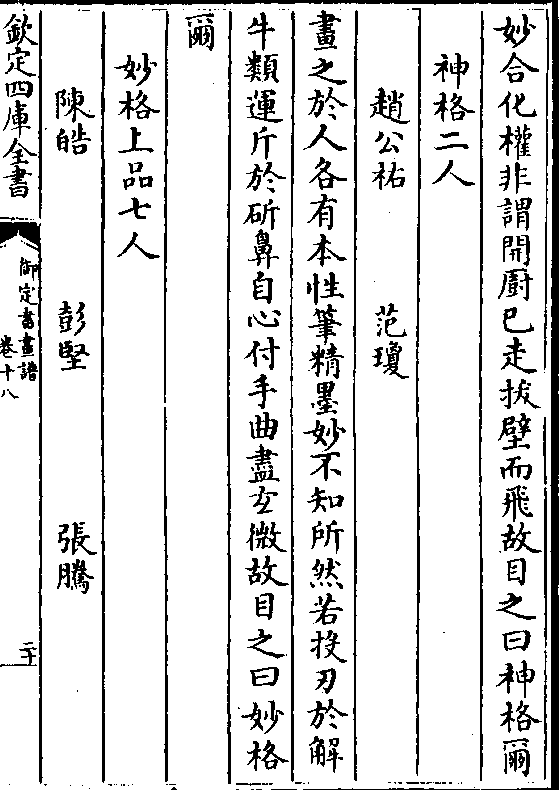 妙合化權非謂開厨已走拔壁而飛故目之曰神格爾
神格二人
趙公祐　范瓊
畫之於人各有本性筆精墨妙不知所然若投刃於解
牛類運斤於斫鼻自心付手曲盡玄微故目之曰妙格
爾
妙格上品七人
陳皓　彭堅　張騰
欽定四庫全書
御定書畫譜
卷十八
二十